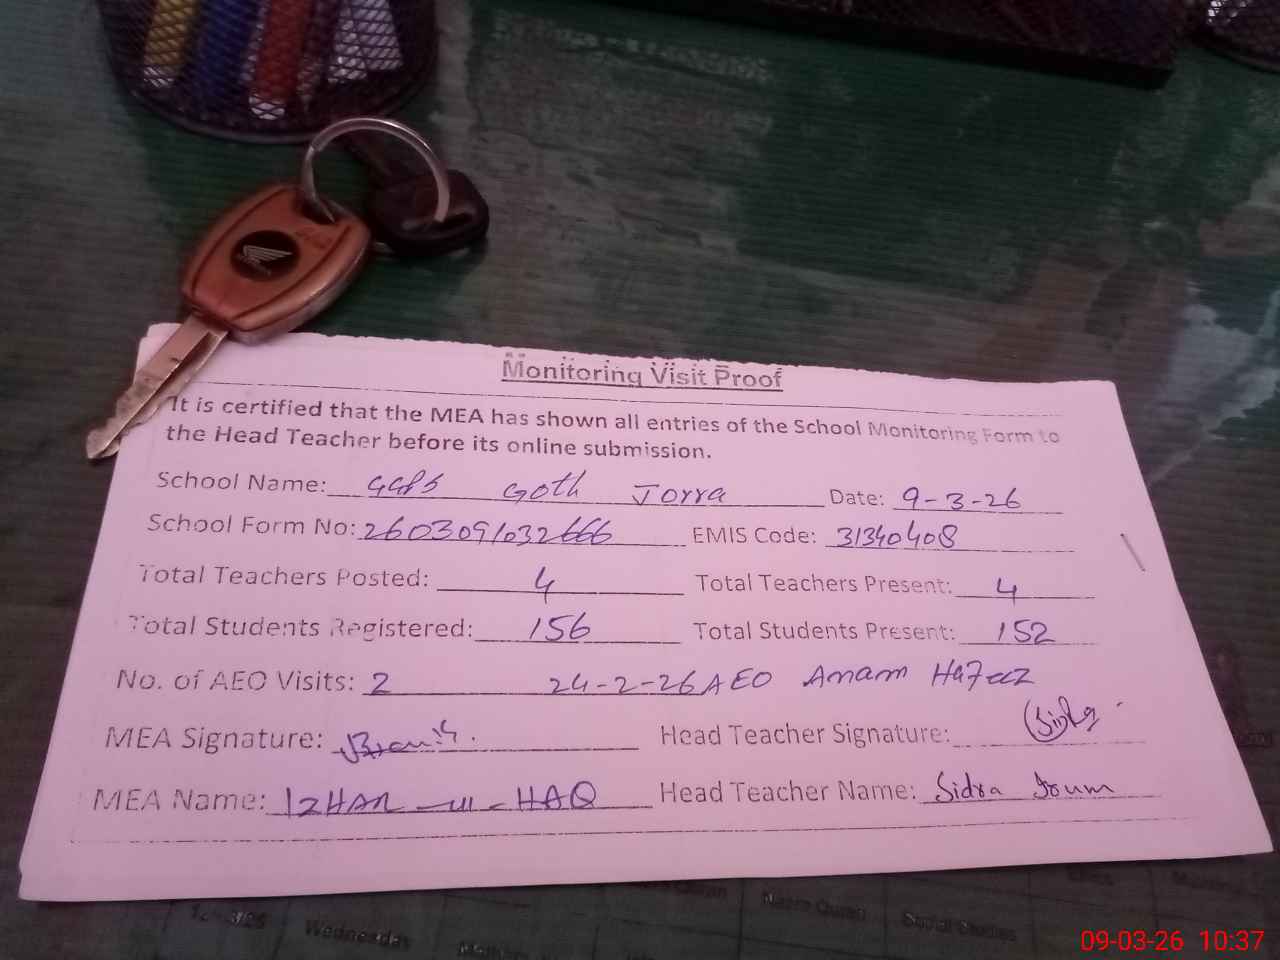 Monitoring Visit Proof
It is certified that the MEA has shown all entries of the School Monitoring Form to
the Head Teacher before its online submission.
School Name: GGPS Goth Jorra Date: 9-3-26
School Form No: 2603091032666 EMIS Code: 31340408
Total Teachers Posted: 4 Total Teachers Present: 4
Total Students Registered: 156 Total Students Present: 152
No. of AEO Visits: 2 24-2-26 AEO Amam Hafeez
MEA Signature: Head Teacher Signature:
MEA Name: IZHAR-ul-HAQ Head Teacher Name: Sidra
Wednesday
Nazra Quran
Social Studies
09-03-26 10:37